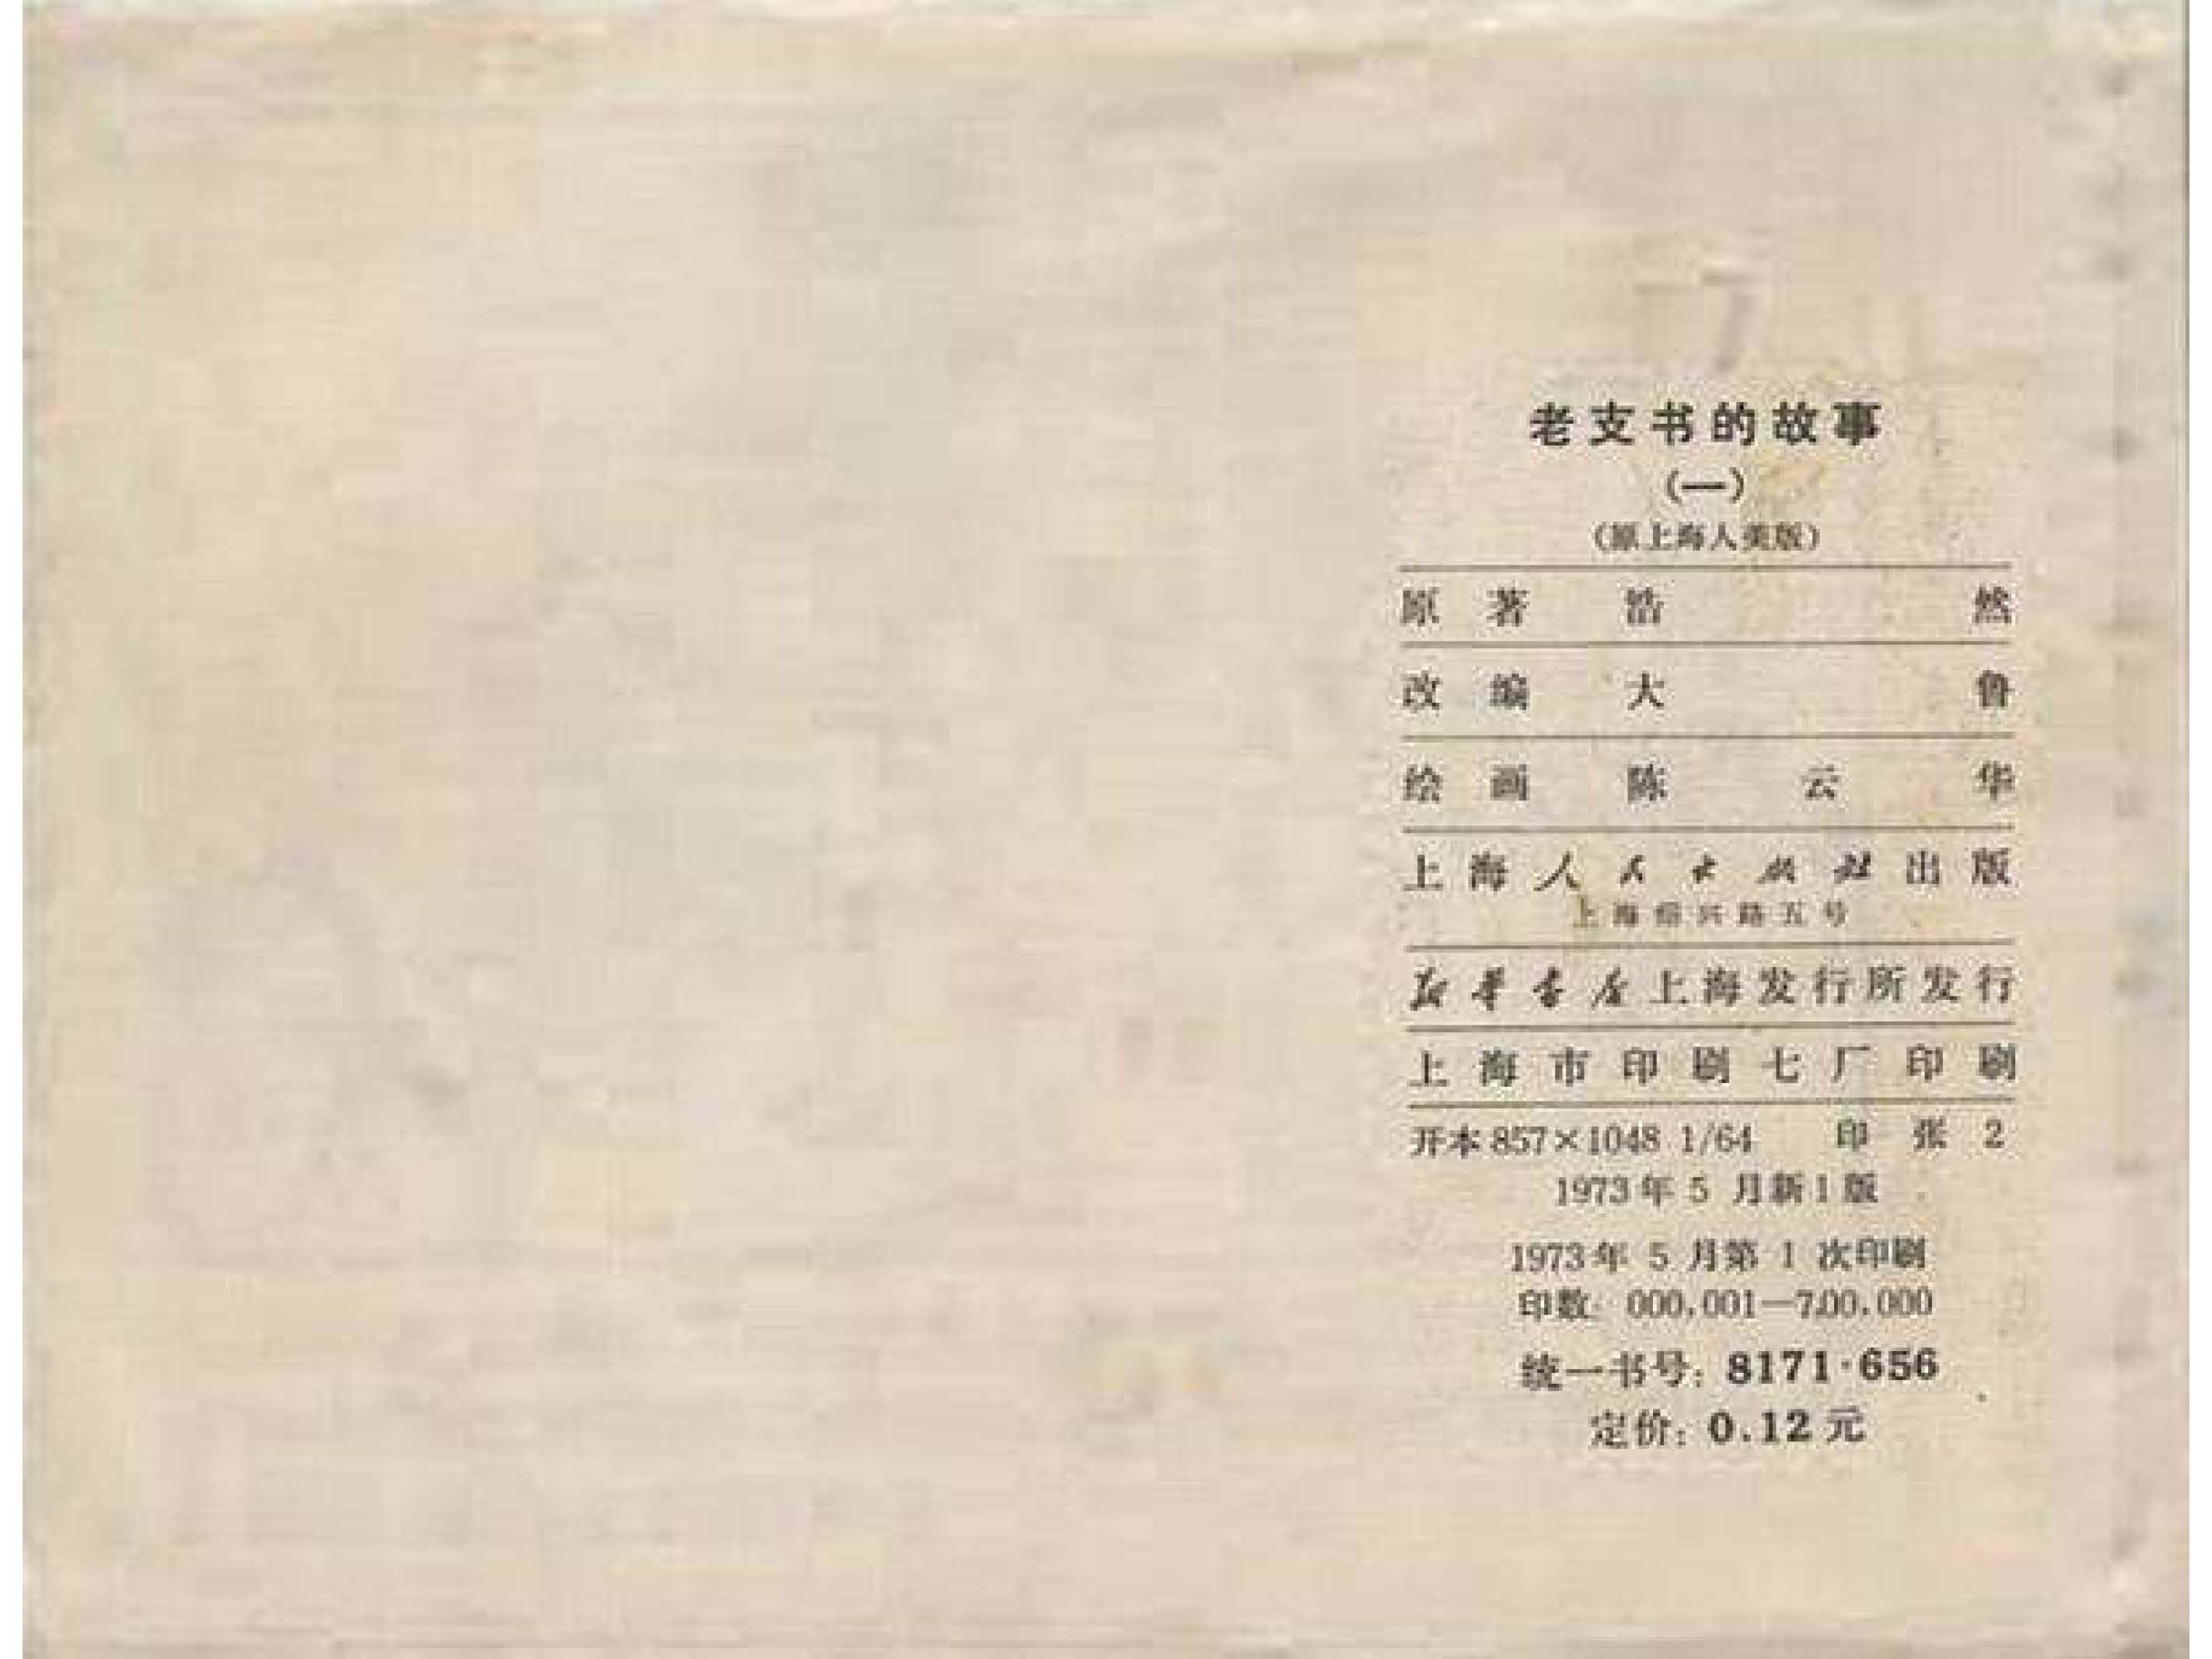 老支书的故事
(一)
(原上海人美版)
原著 浩然
改编 大鲁
绘画 陈云华
上海人民出版社出版
上海绍兴路五号
新华书店上海发行所发行
上海市印刷七厂印刷
开本 857×1048 1/64 印张 2
1973年 5 月新1版
1973年 5 月第 1 次印刷
印数 000,001—700,000
统一书号: 8171·656
定价: 0.12 元